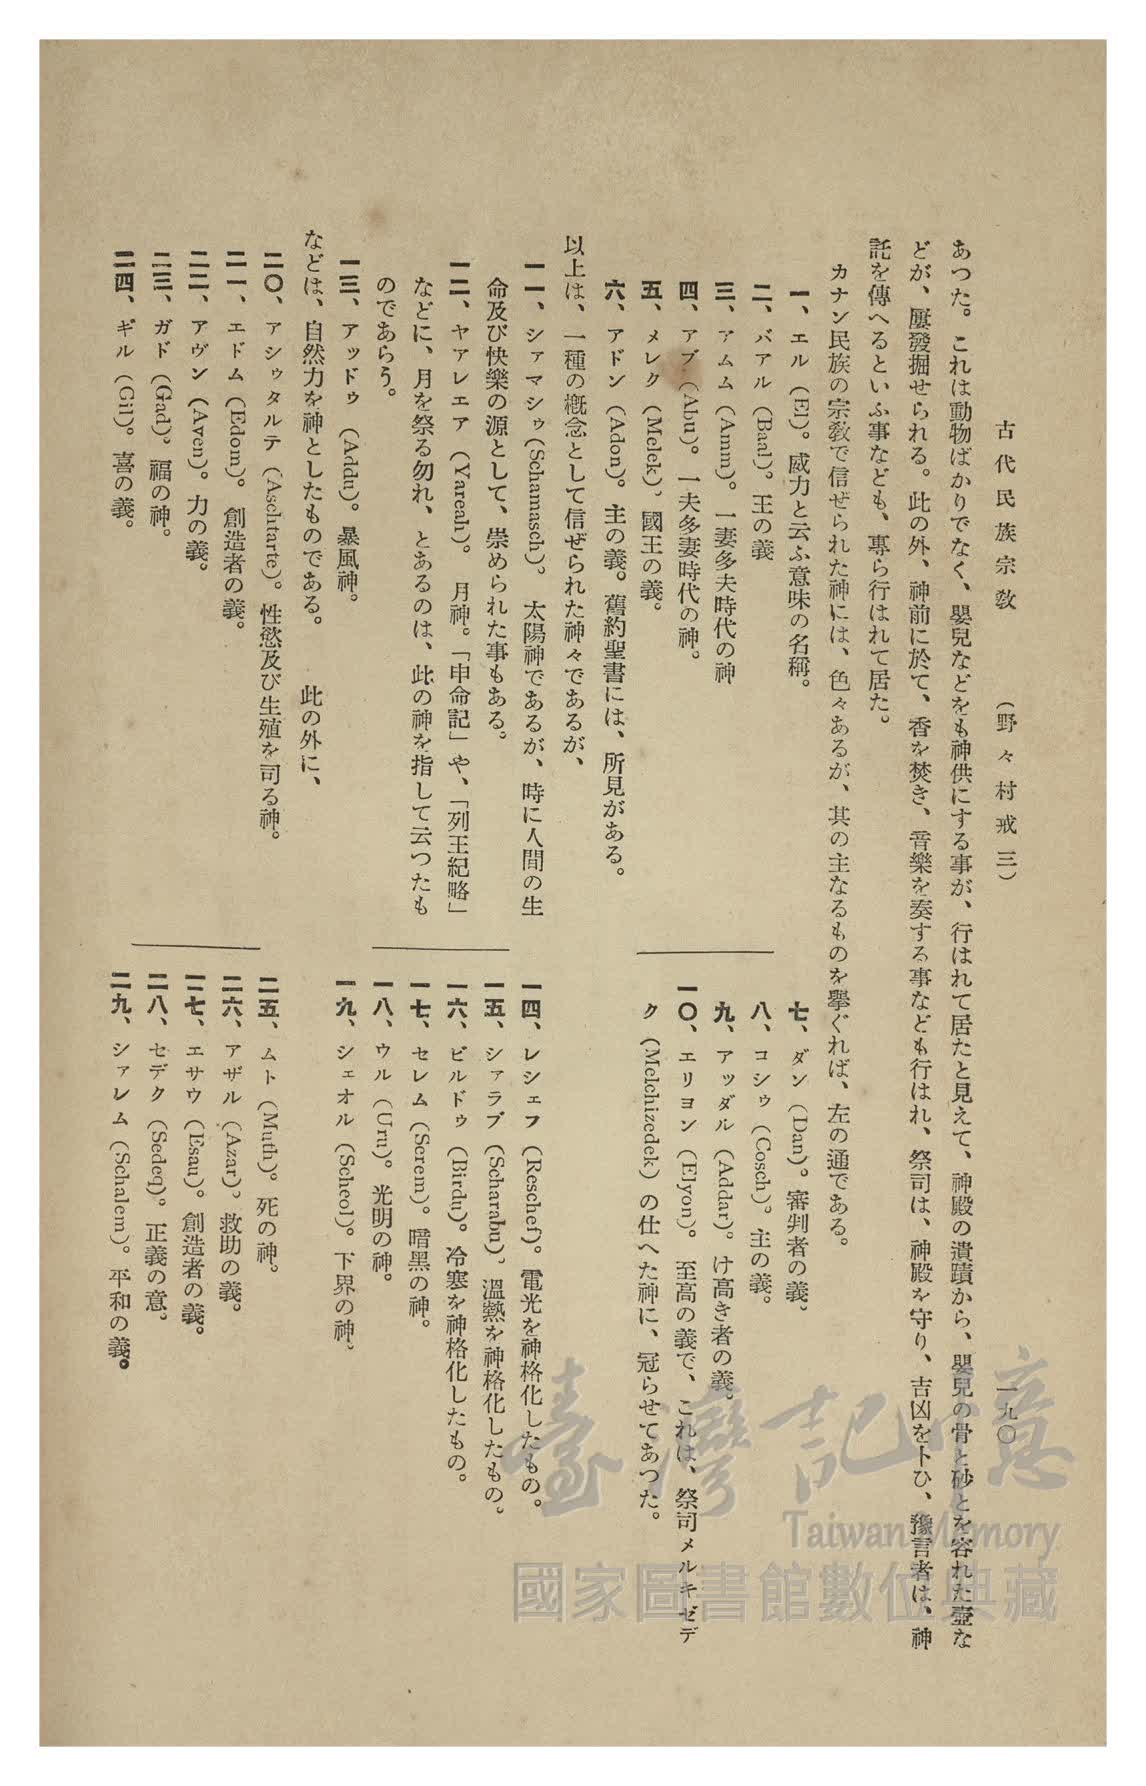 古代民族宗敎　（野々村戒三）　一九〇
あつた。これは動物ばかりでなく、嬰兒などをも神供にする事が、行はれて居たと見えて、神殿の遺蹟から、嬰兒の骨と砂とを容れた壺な
どが、屢發掘せられる。此の外、神前に於て、香を焚き、音樂を奏する事なども行はれ、祭司は、神殿を守り、吉凶をトひ、豫言者は、神
託を傳へるといふ事なども、專ら行はれて居た。
カナン民族の宗敎で信ぜられた神には、色々あるが、其の主なるものを擧ぐれば、左の通である。
一、エル（El）。威力と云ふ意味の名稱。
二、バアル（Baal）。王の義
三、アムム（Amm）。一妻多夫時代の神
四、アブ（Abu）。一夫多妻時代の神。
五、メレク（Melek）、國王の義。
六、アドン（Adon）。主の義。舊約聖書には、所見がある。
七、ダン（Dan）。審判者の義。
八、コシゥ（Cosch）。主の義。
九、アッダル（Addar）。け高き者の義。
一〇、エリヨン（Elyon）。至高の義で、これは、祭司メルキゼデ
ク（Melchizedek）の仕へた神に、冠らせてあつた。
以上は、一種の槪念として信ぜられた神々であるが、
一一、シァマシゥ（Schamasch）。太陽神であるが、時に人間の生
命及び快樂の源として、崇められた事もある。
一二、ヤァレエア（Yareah）。月神。「申命記」や、「列王紀略」
などに、月を祭る勿れ、とあるのは、此の神を指して云つたも
のであらう。
一三、アッドゥ（Addu）。暴風神。
一四、レシェフ（Reschef）。電光を神格化したもの。
一五、シァラブ（Scharabu）、溫熱を神格化したもの。
一六、ビルドゥ（Birdu）。冷寒を神格化したもの。
一七、セレム（Serem）。暗黑の神。
一八、ウル（Uru）。光明の神。
一九、シェオル（Scheol）。下界の神、
などは、自然力を神としたものである。　此の外に、
二〇、アシゥタルテ（Aschtarte）。性慾及び生殖を司る神。
二一、エドム（Edom）。創造者の義。
二二、アヴン（Aven）。力の義。
二三、ガド（Gad）。福の神。
二四、ギル（Gil）。喜の義。
二五、ムト（Muth）。死の神。
二六、アザル（Azar）、救助の義。
二七、エサウ（Esau）。創造者の義。
二八、セデク（Sedeq）。正義の意。
二九、シァレム（Schalem）。平和の義。
臺灣記憶
Taiwan Memory
國家圖書館數位典藏